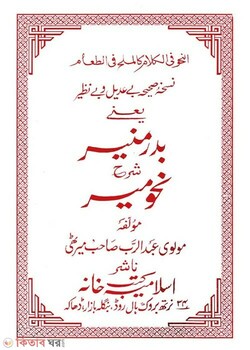 النحو فی الکلام کالملح فی الطعام
نسخۂ صحیحہ بے عدیل و بے نظیر
یعنے
بدر منیر
شرح
نحو میر
مؤلفہ
مولوی عبد الرب صاحب میرٹھی
ناشر
اسلامیہ کتب خانہ
۳۴ نارتھ بروک ہال روڈ، بنگلہ بازار، ڈھاکہ
কিতাব ঘর